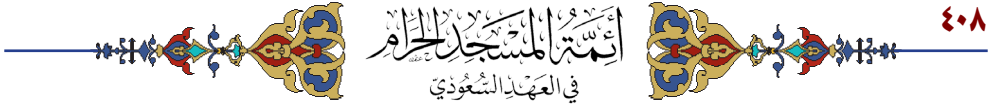 ٤٠٨
أَئِمَّةُ المَسْجِدِ الحَرَامِ
في العَهْدِ السُّعُودِيّ